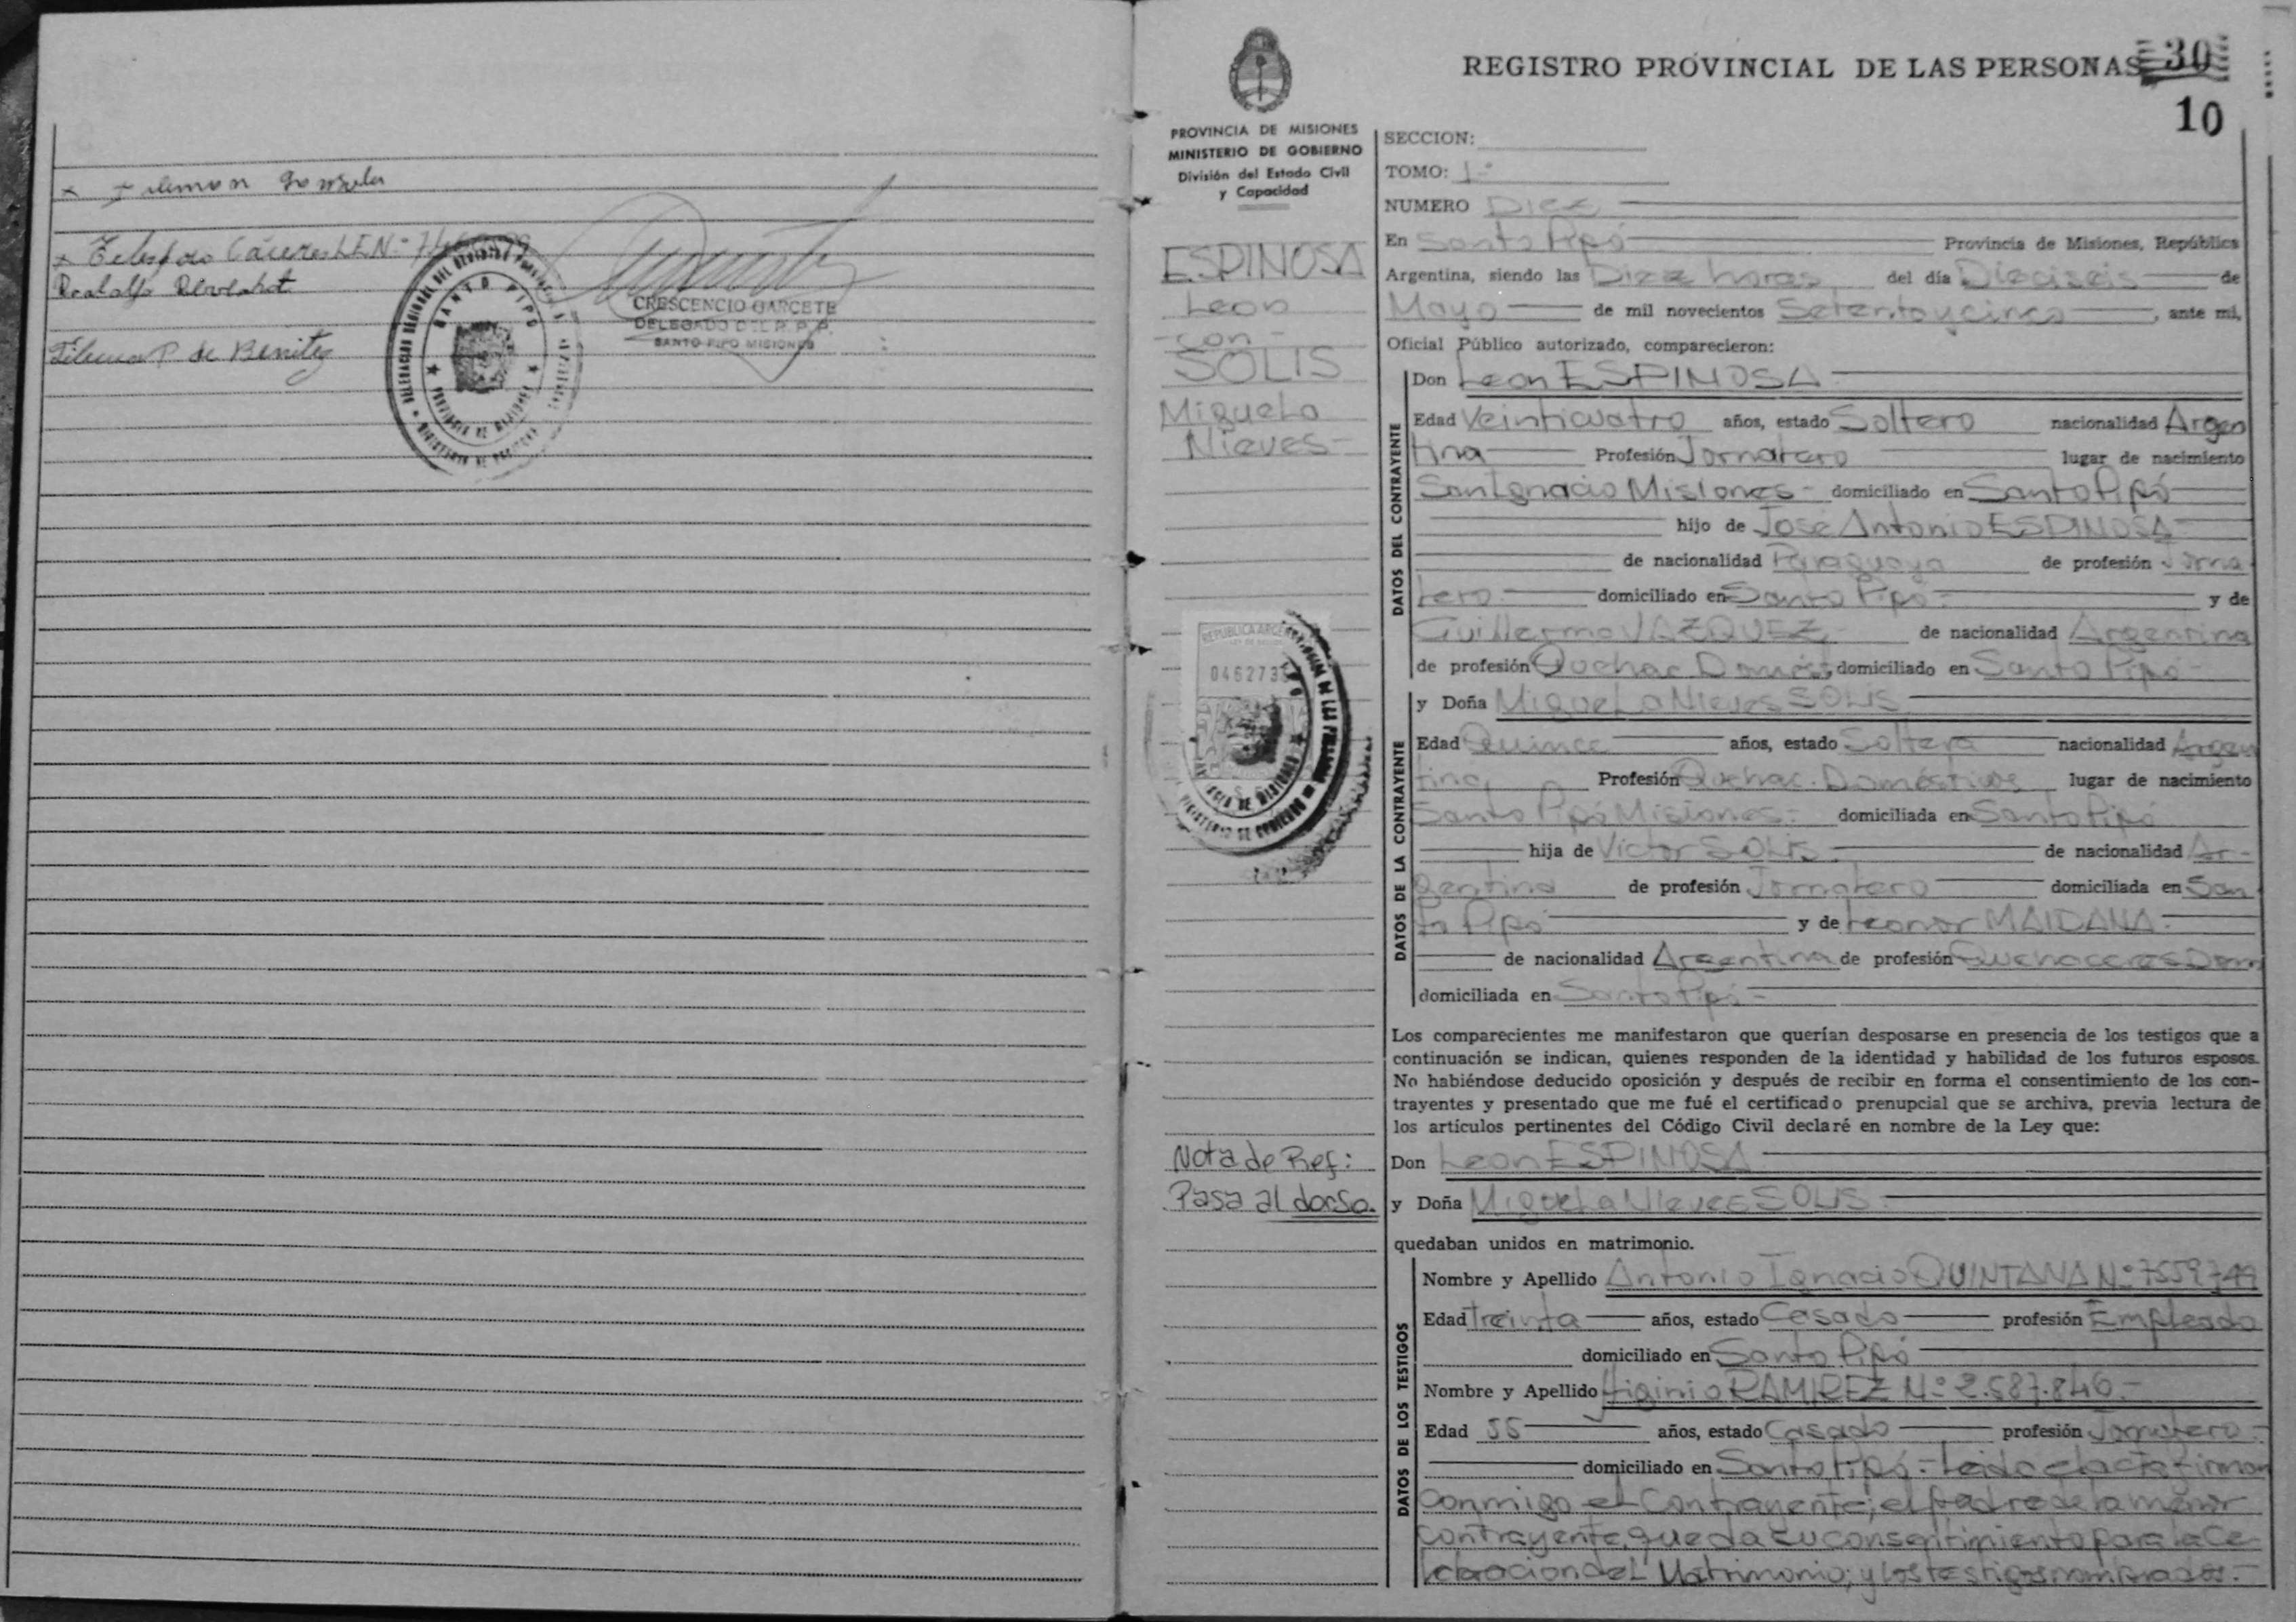 Telesforo Cáceres L.E.N.º
Rodolfo
P. de Benitez
DELEGACION REGIONAL DEL REGISTRO PROVINCIAL
SANTO PIPO
PROVINCIA DE MISIONES
CRESCENCIO GARCETE
DELEGADO DEL R. P. P.
SANTO PIPO MISIONES
PROVINCIA DE MISIONES
MINISTERIO DE GOBIERNO
División del Estado Civil
y Capacidad
ESPINOSA
Leon
-con-
SOLIS
Miguela
Nieves-
REPUBLICA ARGE
046273
Nota de Ref:
Pasa al dorso.
REGISTRO PROVINCIAL DE LAS PERSONAS 30
10
SECCION:
TOMO: 1º
NUMERO Diez
En Santo Pipó Provincia de Misiones, República
Argentina, siendo las Diez horas, del día Dieciseis de
Mayo de mil novecientos Setenta y cinco, ante mi,
Oficial Público autorizado, comparecieron:
DATOS DEL CONTRAYENTE
Don Leon ESPINOSA
Edad Veinticuatro años, estado Soltero nacionalidad Argen
tina Profesión Jornalero lugar de nacimiento
San Ignacio Misiones- domiciliado en Santo Pipó
hijo de José Antonio ESPINOSA-
de nacionalidad Paraguaya de profesión Jorna
lero.- domiciliado en Santo Pipó- y de
Guillerma VAZQUEZ de nacionalidad Argentina
de profesión Quehac. Domést, domiciliado en Santo Pipó
DATOS DE LA CONTRAYENTE
y Doña Miguela Nieves SOLIS
Edad Quince años, estado Soltera nacionalidad Argen
tina Profesión Quehac. Domésticos lugar de nacimiento
Santo Pipó Misiones- domiciliada en Santo Pipó
hija de Victor SOLIS de nacionalidad Ar-
gentina de profesión Jornalero domiciliada en San
to Pipó y de Leonor MAIDANA-
de nacionalidad Argentina de profesión Quehaceres Dom
domiciliada en Santo Pipó-
Los comparecientes me manifestaron que querían desposarse en presencia de los testigos que a
continuación se indican, quienes responden de la identidad y habilidad de los futuros esposos.
No habiéndose deducido oposición y después de recibir en forma el consentimiento de los con-
trayentes y presentado que me fué el certificado prenupcial que se archiva, previa lectura de
los artículos pertinentes del Código Civil declaré en nombre de la Ley que:
Don Leon ESPINOSA
y Doña Miguela Nieves SOLIS
quedaban unidos en matrimonio.
DATOS DE LOS TESTIGOS
Nombre y Apellido Antonio Ignacio QUINTANA Nº 7559749
Edad treinta años, estado Casado profesión Empleado
domiciliado en Santo Pipó
Nombre y Apellido Higinio RAMIREZ Nº 2.587.846.-
Edad 55 años, estado Casado profesión Jornalero-
domiciliado en Santo Pipó.- Leida el acta firman
conmigo el Contrayente; el padre de la menor
contrayente, que da su consentimiento para la Ce-
lebracion del Matrimonio; y los testigos nombrados.-